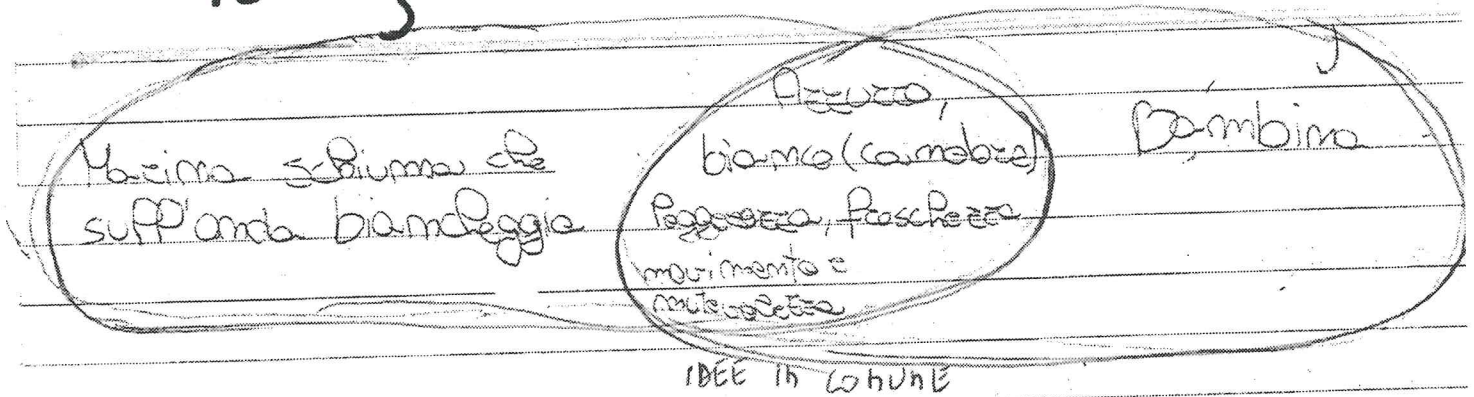 Marina schiuma che
sull'onda biancheggia
Azzurro,
bianco (candore)
leggerezza, freschezza
movimento e
mutevolezza
Bambina
IDEE IN COMUNE